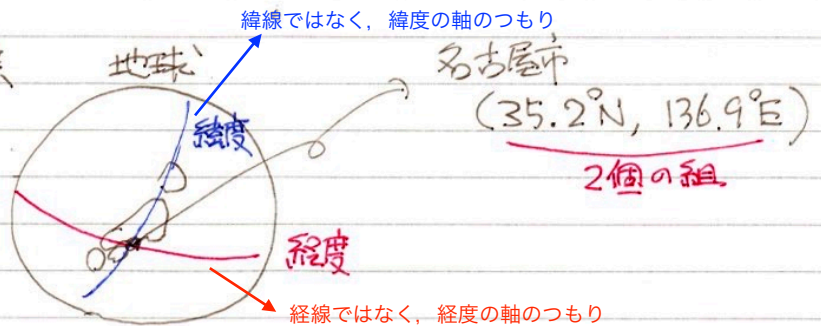 緯線ではなく，緯度の軸のつもり
地球
名古屋市
(35.2°N, 136.9°E)
緯度
2個の組
経度
経線ではなく，経度の軸のつもり